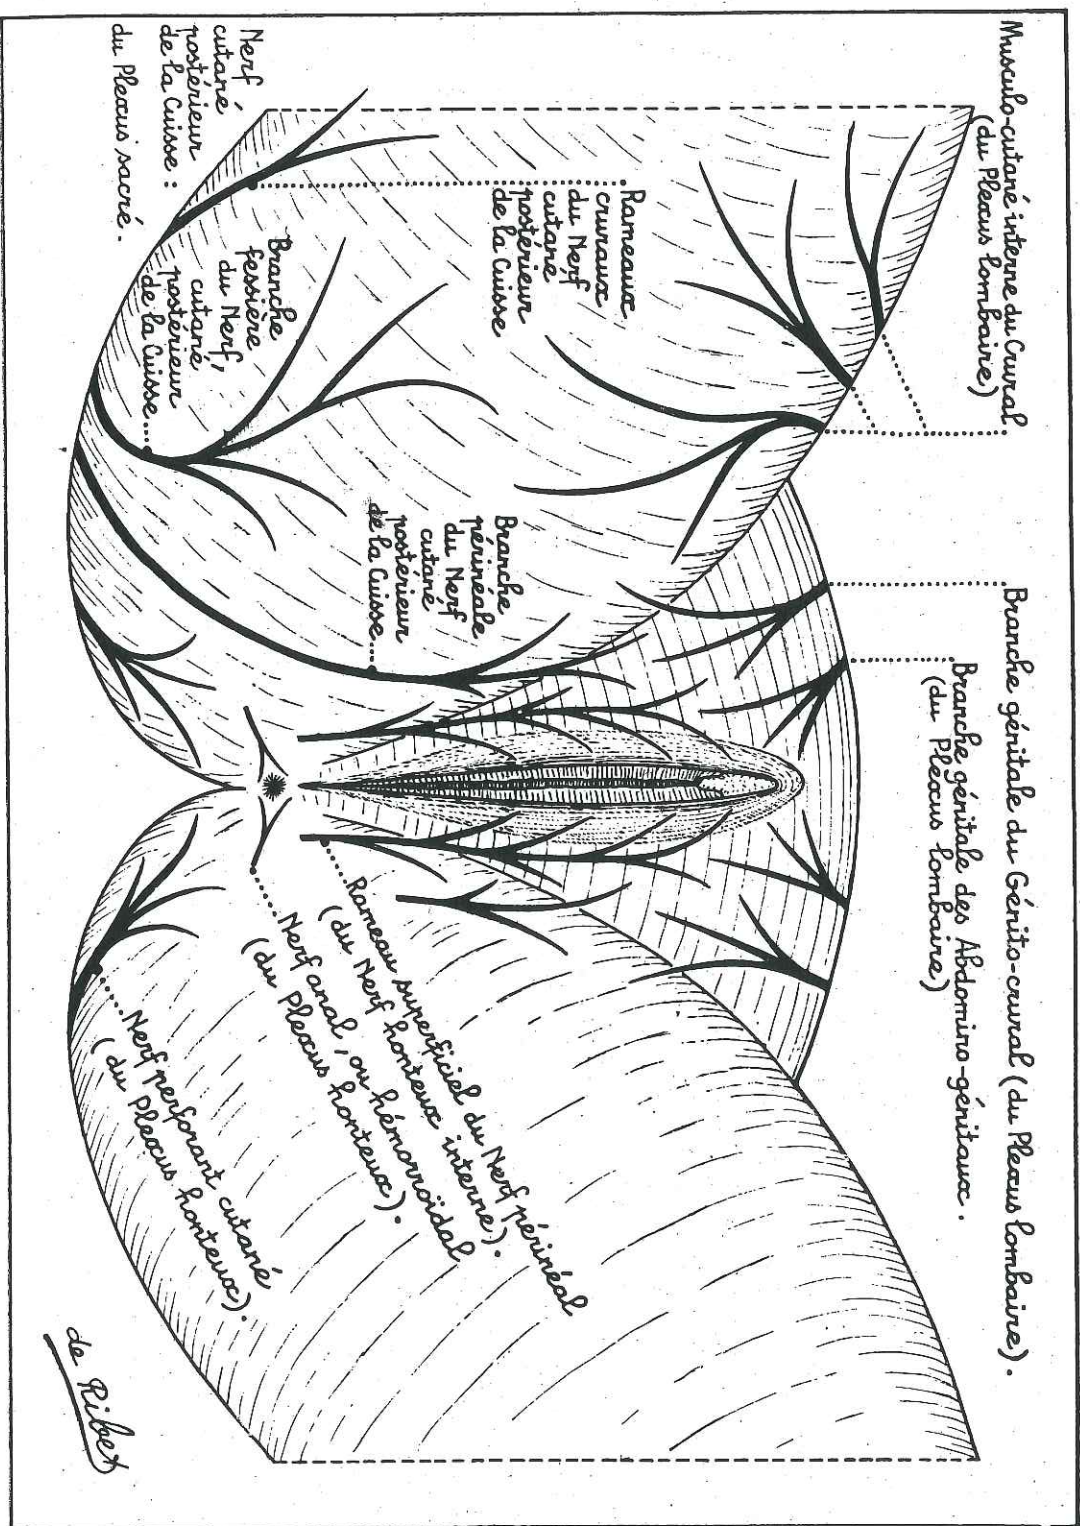 Musculo-cutané interne du Crural
(du Plexus lombaire)
Branche génitale du Génito-crural (du Plexus lombaire).
Branche génitale des Abdomino-génitaux.
(du Plexus lombaire)
Rameaux
cruraux
du Nerf
cutané
postérieur
de la Cuisse
Branche
périnéale
du Nerf
cutané
postérieur
de la Cuisse
Nerf
cutané
postérieur
de la Cuisse :
du Plexus sacré.
Branche
fessière
du Nerf,
cutané
postérieur
de la Cuisse
Rameau superficiel du Nerf périnéal
(du Nerf honteux interne).
Nerf anal, ou hémorroïdal
(du Plexus honteux).
Nerf perforant cutané
(du Plexus honteux).
de Ribet